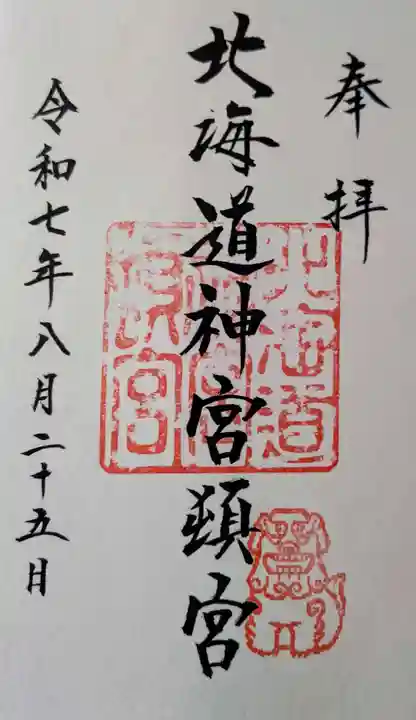 奉拝
北海道神宮頓宮
令和七年八月二十五日
北海道神宮頓宮